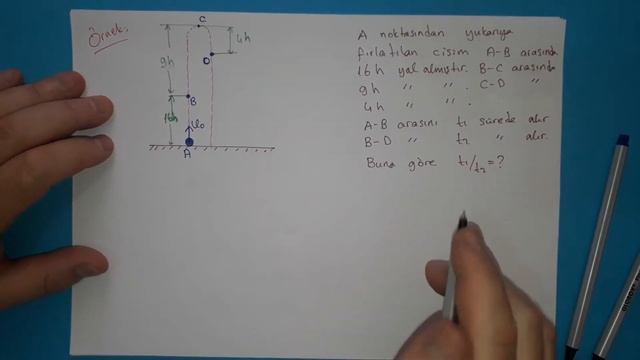 Örnek:
C
4h
D
9h
B
16h
υ₀
A
A noktasından yukarıya
fırlatılan cisim A-B arasında
16h yol almıştır. B-C arasında
9h " " . C-D "
4h " " .
A-B arasını t₁ sürede alır
B-D " t₂ " alır.
Buna göre t₁/t₂=?